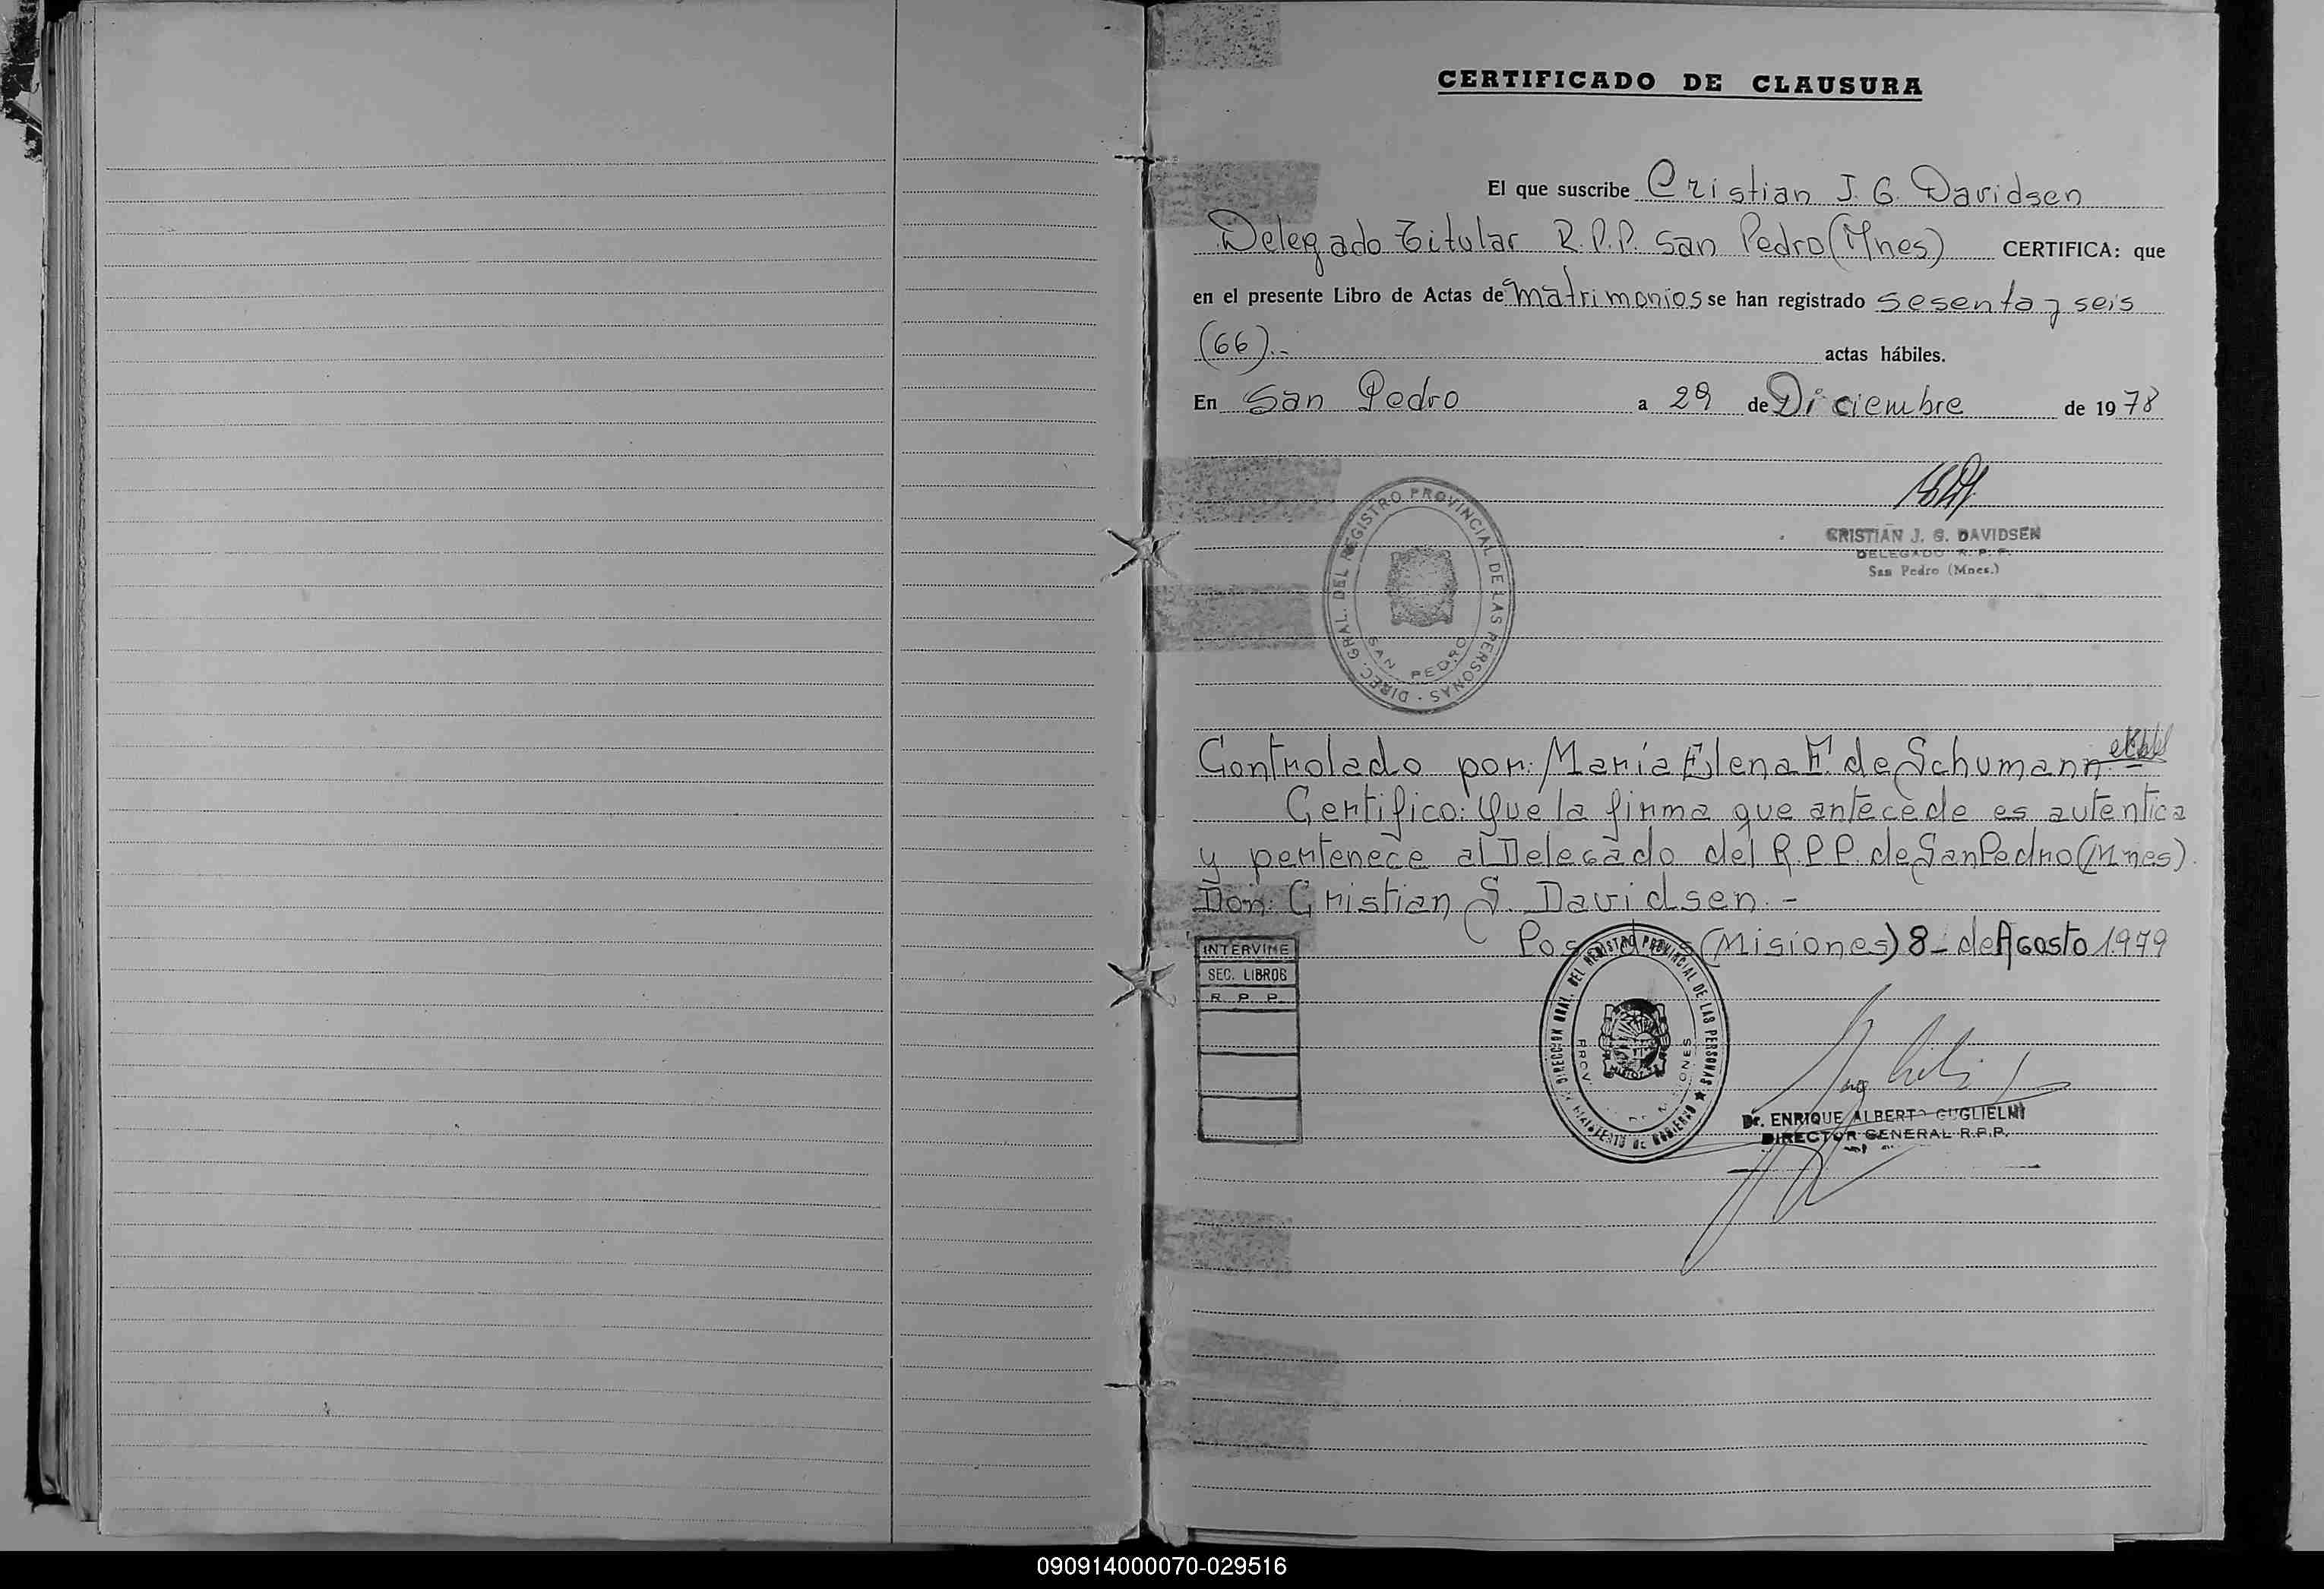 CERTIFICADO DE CLAUSURA
El que suscribe Cristian J. G. Davidsen
Delegado Titular R.P.P. San Pedro (Mnes) CERTIFICA: que
en el presente Libro de Actas de Matrimonios se han registrado sesenta y seis
(66).- actas hábiles.
En San Pedro a 29 de Diciembre de 1978
DIREC. GRAL. DEL REGISTRO PROVINCIAL DE LAS PERSONAS
SAN PEDRO
CRISTIAN J. G. DAVIDSEN
DELEGADO R. P. P.
San Pedro (Mnes.)
Controlado por: María Elena F. de Schumann
Certifico: Que la firma que antecede es autentica
y pertenece al Delegado del R.P.P. de San Pedro (Mnes).
Don: Cristian S. Davidsen.-
(Misiones) 8- de Agosto 1979
INTERVINE
SEC. LIBROS
R. P. P.
DIRECCION GRAL. DEL REGISTRO PROVINCIAL DE LAS PERSONAS
MINISTERIO DE GOBIERNO
PROV. DE MISIONES
Dr. ENRIQUE ALBERTO GUGLIELMI
DIRECTOR GENERAL R.P.P.
090914000070-029516